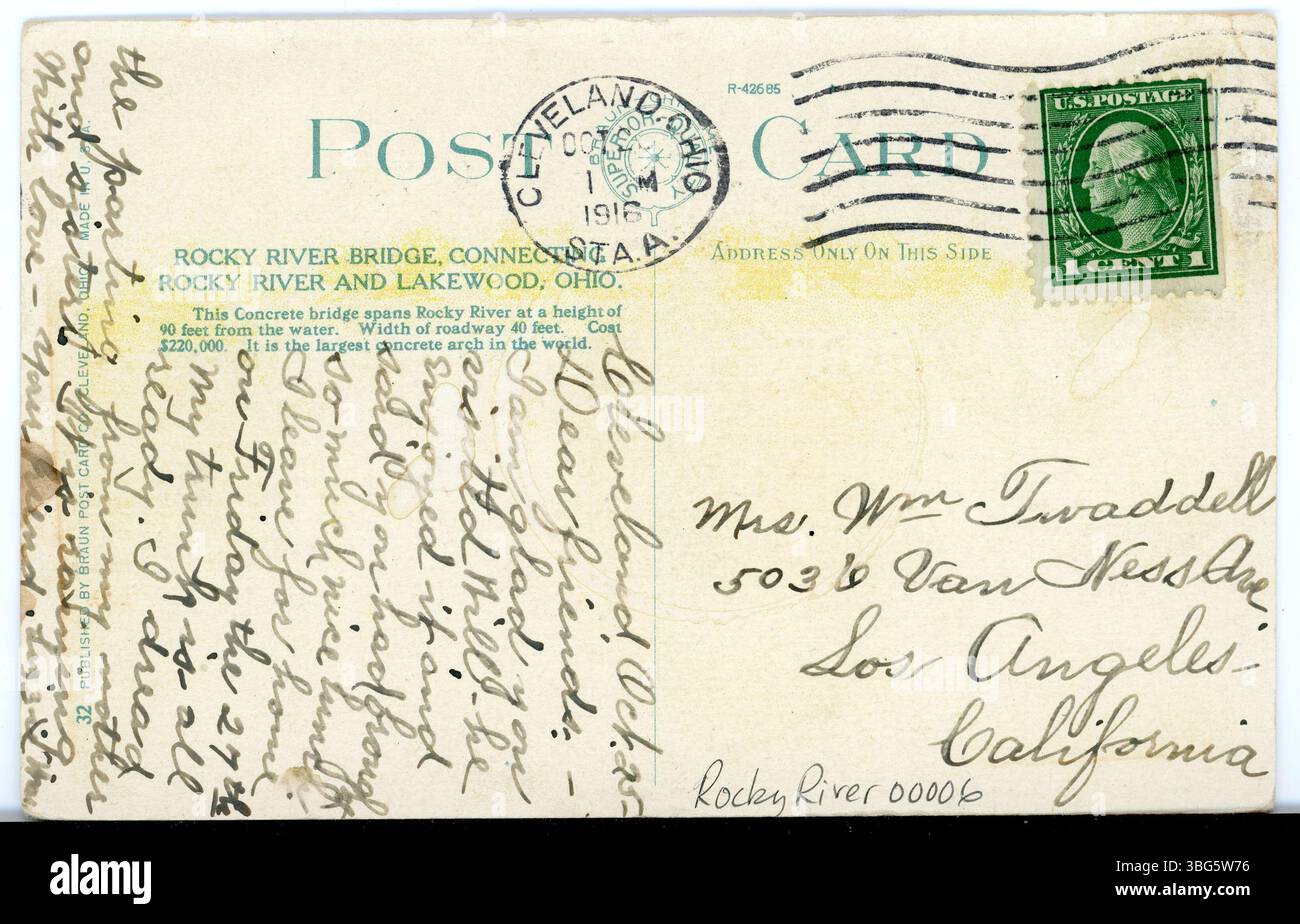 R-42685
POST CARD
CLEVELAND, OHIO
OCT
1 M
1916
STA. A.
U.S. POSTAGE
1 CENT 1
ROCKY RIVER BRIDGE, CONNECTING
ROCKY RIVER AND LAKEWOOD, OHIO.
This Concrete bridge spans Rocky River at a height of
90 feet from the water. Width of roadway 40 feet. Cost
$220,000. It is the largest concrete arch in the world.
ADDRESS ONLY ON THIS SIDE
Cleveland Oct. 25-
Dear friends. -
I am glad you
visited Will - he
enjoyed it and
said you had
so much nice
I leave for home
on Friday the 27th
My trunk is all
ready. I dread
the parting from my mother
and sisters
With love - your friend
Mrs. Wm Twaddell
5036 Van Ness Ave
Los Angeles
California
Rocky River 00006
32 PUBLISHED BY BRAUN POST CARD CO., CLEVELAND, OHIO. MADE IN U.S.A.
alamy
Image ID: 3BG5W76
www.alamy.com